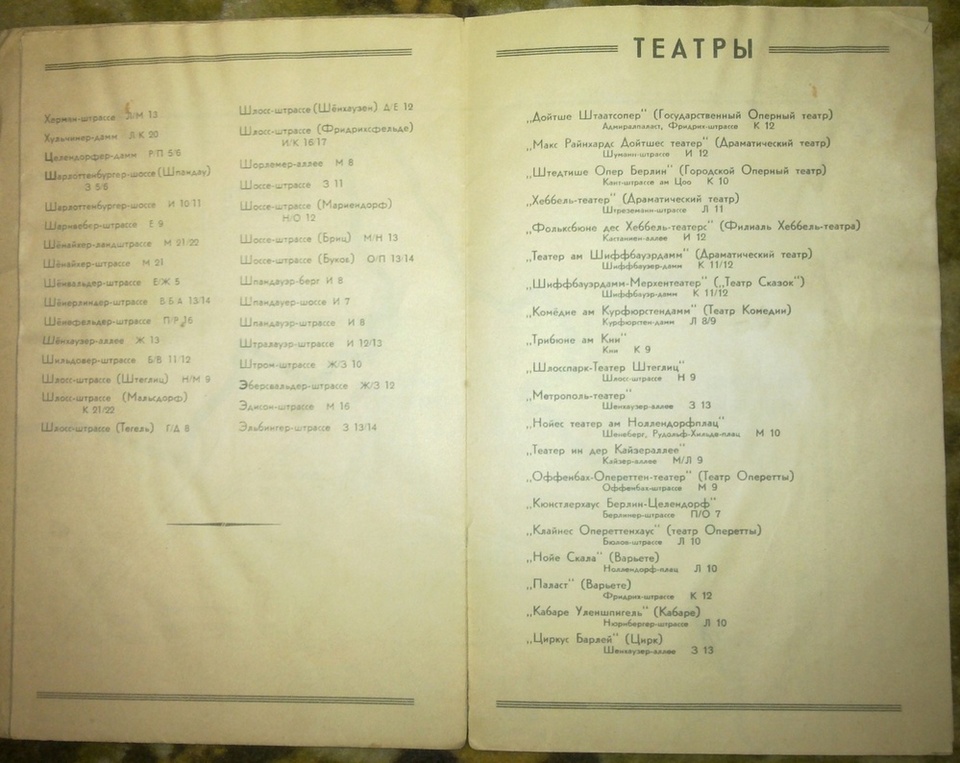 Херман-штрассе Л/М 13
Хульчинер-дамм Л К 20
Целендорфер-дамм Р/П 5/6
Шарлоттенбургер-шоссе (Шпандау)
З 5/6
Шарлоттенбургер-шоссе И 10/11
Шарнвебер-штрассе Е 9
Шёнайхер-ландштрассе М 21/22
Шёнайхер-штрассе М 21
Шёнвальдер-штрассе Е/Ж 5
Шёнерлиндер-штрассе В Б А 13/14
Шёнефельдер-штрассе П/Р 16
Шёнхаузер-аллее Ж 13
Шильдовер-штрассе Б/В 11/12
Шлосс-штрассе (Штеглиц) Н/М 9
Шлосс-штрассе (Мальсдорф)
К 21/22
Шлосс-штрассе (Тегель) Г/Д 8
Шлосс-штрассе (Шёнхаузен) Д/Е 12
Шлосс-штрассе (Фридрихсфельде)
И/К 16/17
Шорлемер-аллее М 8
Шоссе-штрассе З 11
Шоссе-штрассе (Мариендорф)
Н/О 12
Шоссе-штрассе (Бриц) М/Н 13
Шоссе-штрассе (Буков) О/П 13/14
Шпандауэр-берг И 8
Шпандауер-шоссе И 7
Шпандауэр-штрассе И 8
Штралауэр-штрассе И 12/13
Штром-штрассе Ж/З 10
Эберсвальдер-штрассе Ж/З 12
Эдисон-штрассе М 16
Эльбингер-штрассе З 13/14
ТЕАТРЫ
„Дойтше Штаатсопер" (Государственный Оперный театр)
Адмиралпаласт, Фридрих-штрассе К 12
„Макс Райнхардс Дойтшес театер" (Драматический театр)
Шуманн-штрассе И 12
„Штедтише Опер Берлин" (Городской Оперный театр)
Кант-штрассе ам Цоо К 10
„Хеббель-театер" (Драматический театр)
Штреземанн-штрассе Л 11
„Фольксбюне дес Хеббель-театерс" (Филиаль Хеббель-театра)
Кастаниен-аллее И 12
„Театер ам Шиффбауэрдамм" (Драматический театр)
Шиффбауэр-дамм К 11/12
„Шиффбауэрдамм-Мерхентеатер" („Театр Сказок")
Шиффбауэр-дамм К 11/12
„Комёдие ам Курфюрстендамм" (Театр Комедии)
Курфюрстен-дамм Л 8/9
„Трибюне ам Кни"
Кни К 9
„Шлосспарк-Театер Штеглиц"
Шлосс-штрассе Н 9
„Метрополь-театер"
Шенхаузер-аллее З 13
„Нойес театер ам Ноллендорфплац"
Шенеберг, Рудольф-Хильде-плац М 10
„Театер ин дер Кайзераллее"
Кайзер-аллее М/Л 9
„Оффенбах-Опереттен-театер" (Театр Оперетты)
Оффенбах-штрассе М 9
„Кюнстлерхаус Берлин-Целендорф"
Берлинер-штрассе П/О 7
„Клайнес Опереттенхаус" (театр Оперетты)
Бюлов-штрассе Л 10
„Нойе Скала" (Варьете)
Ноллендорф-плац Л 10
„Паласт" (Варьете)
Фридрих-штрассе К 12
„Кабаре Уленшпигель" (Кабаре)
Нюрнбергер-штрассе Л 10
„Циркус Барлей" (Цирк)
Шенхаузер-аллее З 13